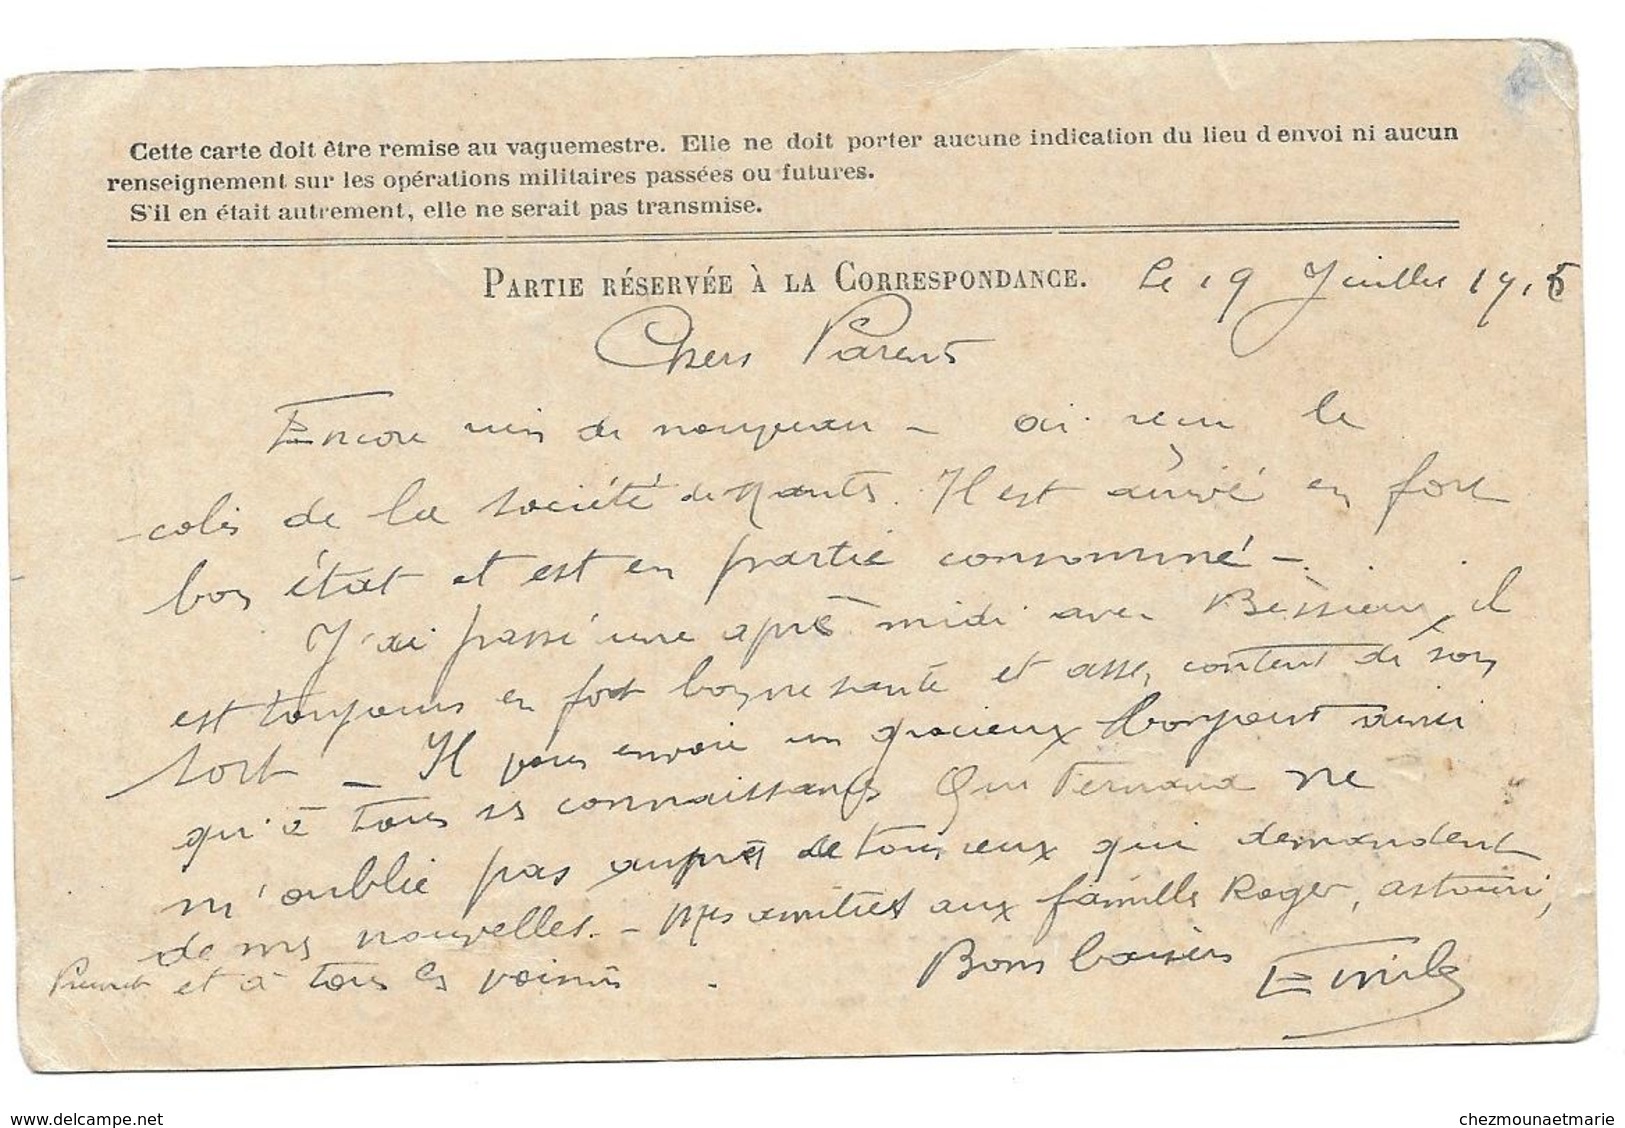 Cette carte doit être remise au vaguemestre. Elle ne doit porter aucune indication du lieu d'envoi ni aucun
renseignement sur les opérations militaires passées ou futures.
S'il en était autrement, elle ne serait pas transmise.
PARTIE RÉSERVÉE À LA CORRESPONDANCE. Le 19 Juillet 1915
Chers Parents
Encore rien de nouveau - ai reçu le
colis de la société de Nantes. Il est arrivé en fort
bon état et est en partie consommé -.
J'ai passé une après midi avec Bessieux, il
est toujours en fort bonne santé et assez content de son
sort - Il vous envoie un gracieux bonjour ainsi
qu'à tous ses connaissances Que Fernand ne
m'oublie pas auprès de tous ceux qui demandent
de mes nouvelles. - Mes amitiés aux famille Roger, Astouri,
et à tous les voisins. Bons baisers Emile
www.delcampe.net
chezmounaetmarie